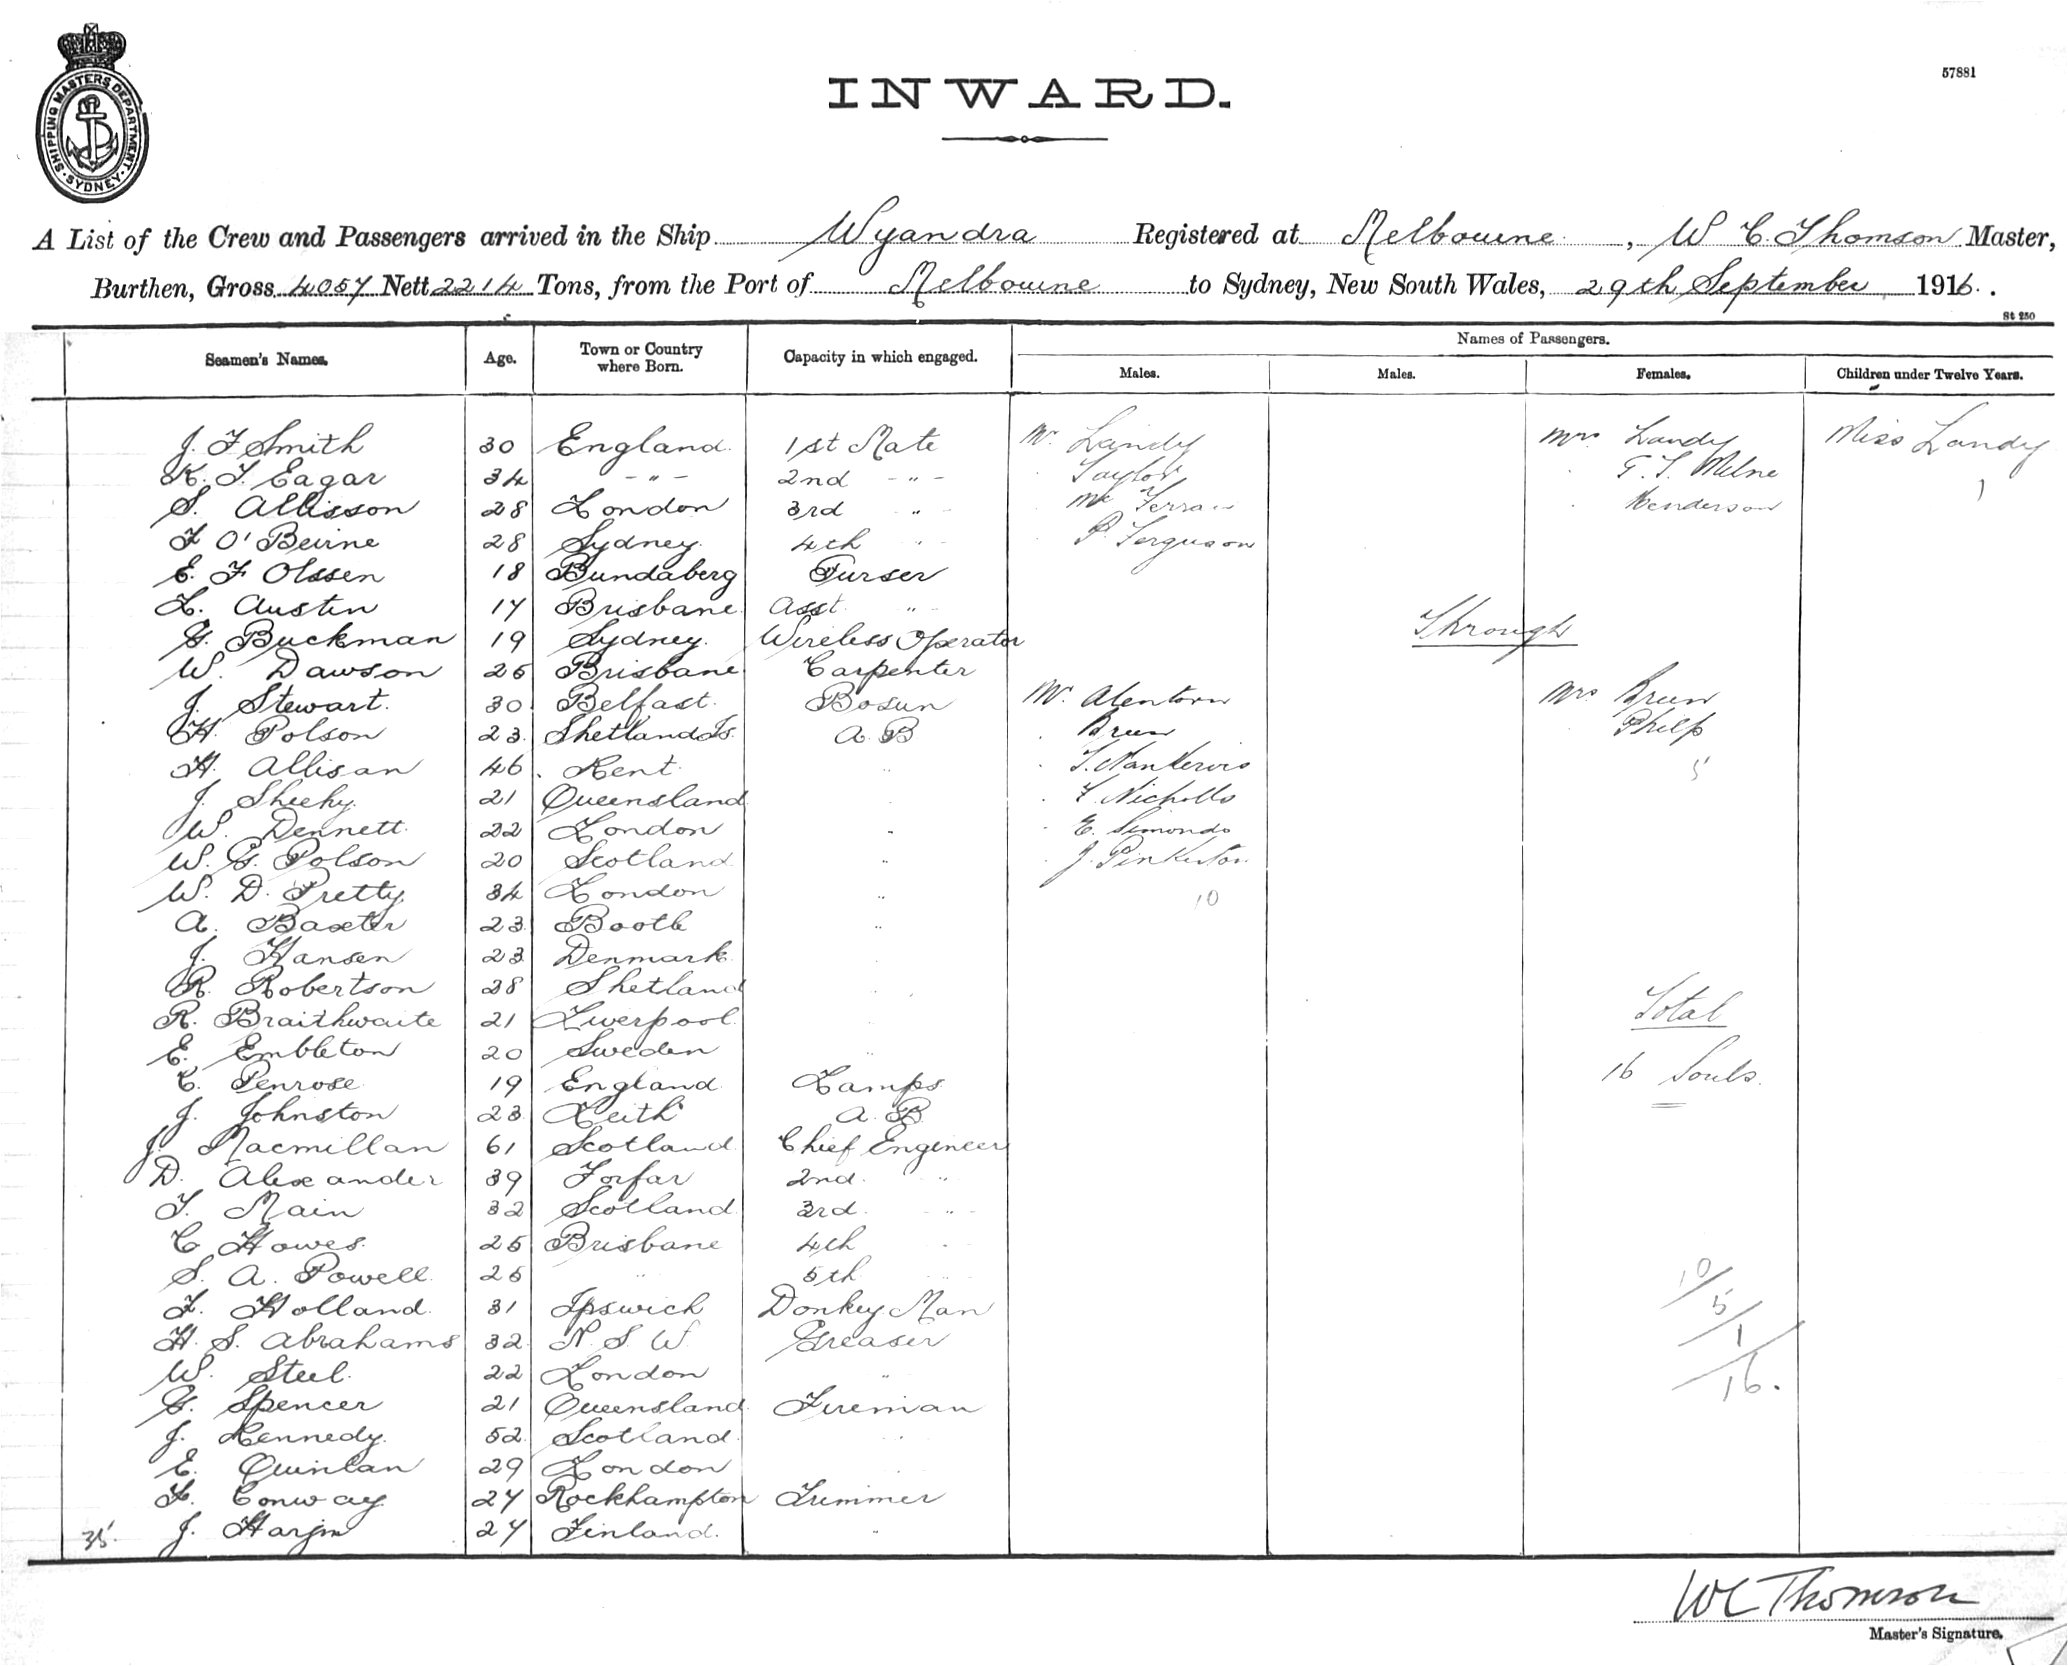 SHIPPING MASTERS DEPARTMENT · SYDNEY ·
57881
INWARD.
A List of the Crew and Passengers arrived in the Ship Wyandra Registered at Melbourne, W C. Thomson Master,
Burthen, Gross 4057 Nett 2214 Tons, from the Port of Melbourne to Sydney, New South Wales, 29th September 1916.
St 250
Seamen's Names. Age. Town or Country where Born. Capacity in which engaged. Names of Passengers.
Males. Males. Females. Children under Twelve Years.
J. F Smith 30 England. 1st Mate Mr. Landy Mrs Landy Miss Landy
K. T. Eagar 34 - " - 2nd - " - Taylor F. T. Milne
S. Allisson 28 London 3rd " Mc Ferran Henderson 1
F O'Beirne 28 Sydney. 4th " P. Ferguson
E. F Olssen 18 Bundaberg Purser
L. Austin 17 Brisbane Asst. "
G. Buckman 19 Sydney. Wireless Operator Through
W. Dawson 25 Brisbane Carpenter
J. Stewart. 30 Belfast. Bosun Mr. Mrs
H. Polson 23 Shetland Is. A. B Philp
H. Allison 46 Kent. T. Nankervis 5
J. Sheehy. 21 Queensland F. Nicholls
W. Dennett. 22 London " E. Simonds
W. G. Polson 20 Scotland " J. Pinkerton
W. D. Pretty 34 London " 10
A. Baxter 23 Bootle "
J. Hansen 23 Denmark
R. Robertson 28 Shetland
R. Braithwaite 21 Liverpool. Total
E. Embleton 20 Sweden
C. Penrose 19 England Lamps 16 Souls.
J. Johnston 23 Leith A. B.
J. Macmillan 61 Scotland Chief Engineer
D. Alexander 39 Forfar 2nd. "
T. Main 32 Scotland 3rd. - " -
C Howes. 25 Brisbane 4th "
S. A. Powell. 25 " 5th " 10
F. Holland. 31 Ipswich Donkey Man 5
H. S. Abrahams 32 N. S. W. Greaser 1
W. Steel. 22 London " 16.
G. Spencer 21 Queensland Fireman
J. Kennedy. 52 Scotland "
E. Quinlan 29 London
F. Conway 27 Rockhampton Trimmer
35. J. 27 Finland. "
WC Thomson
Master's Signature.